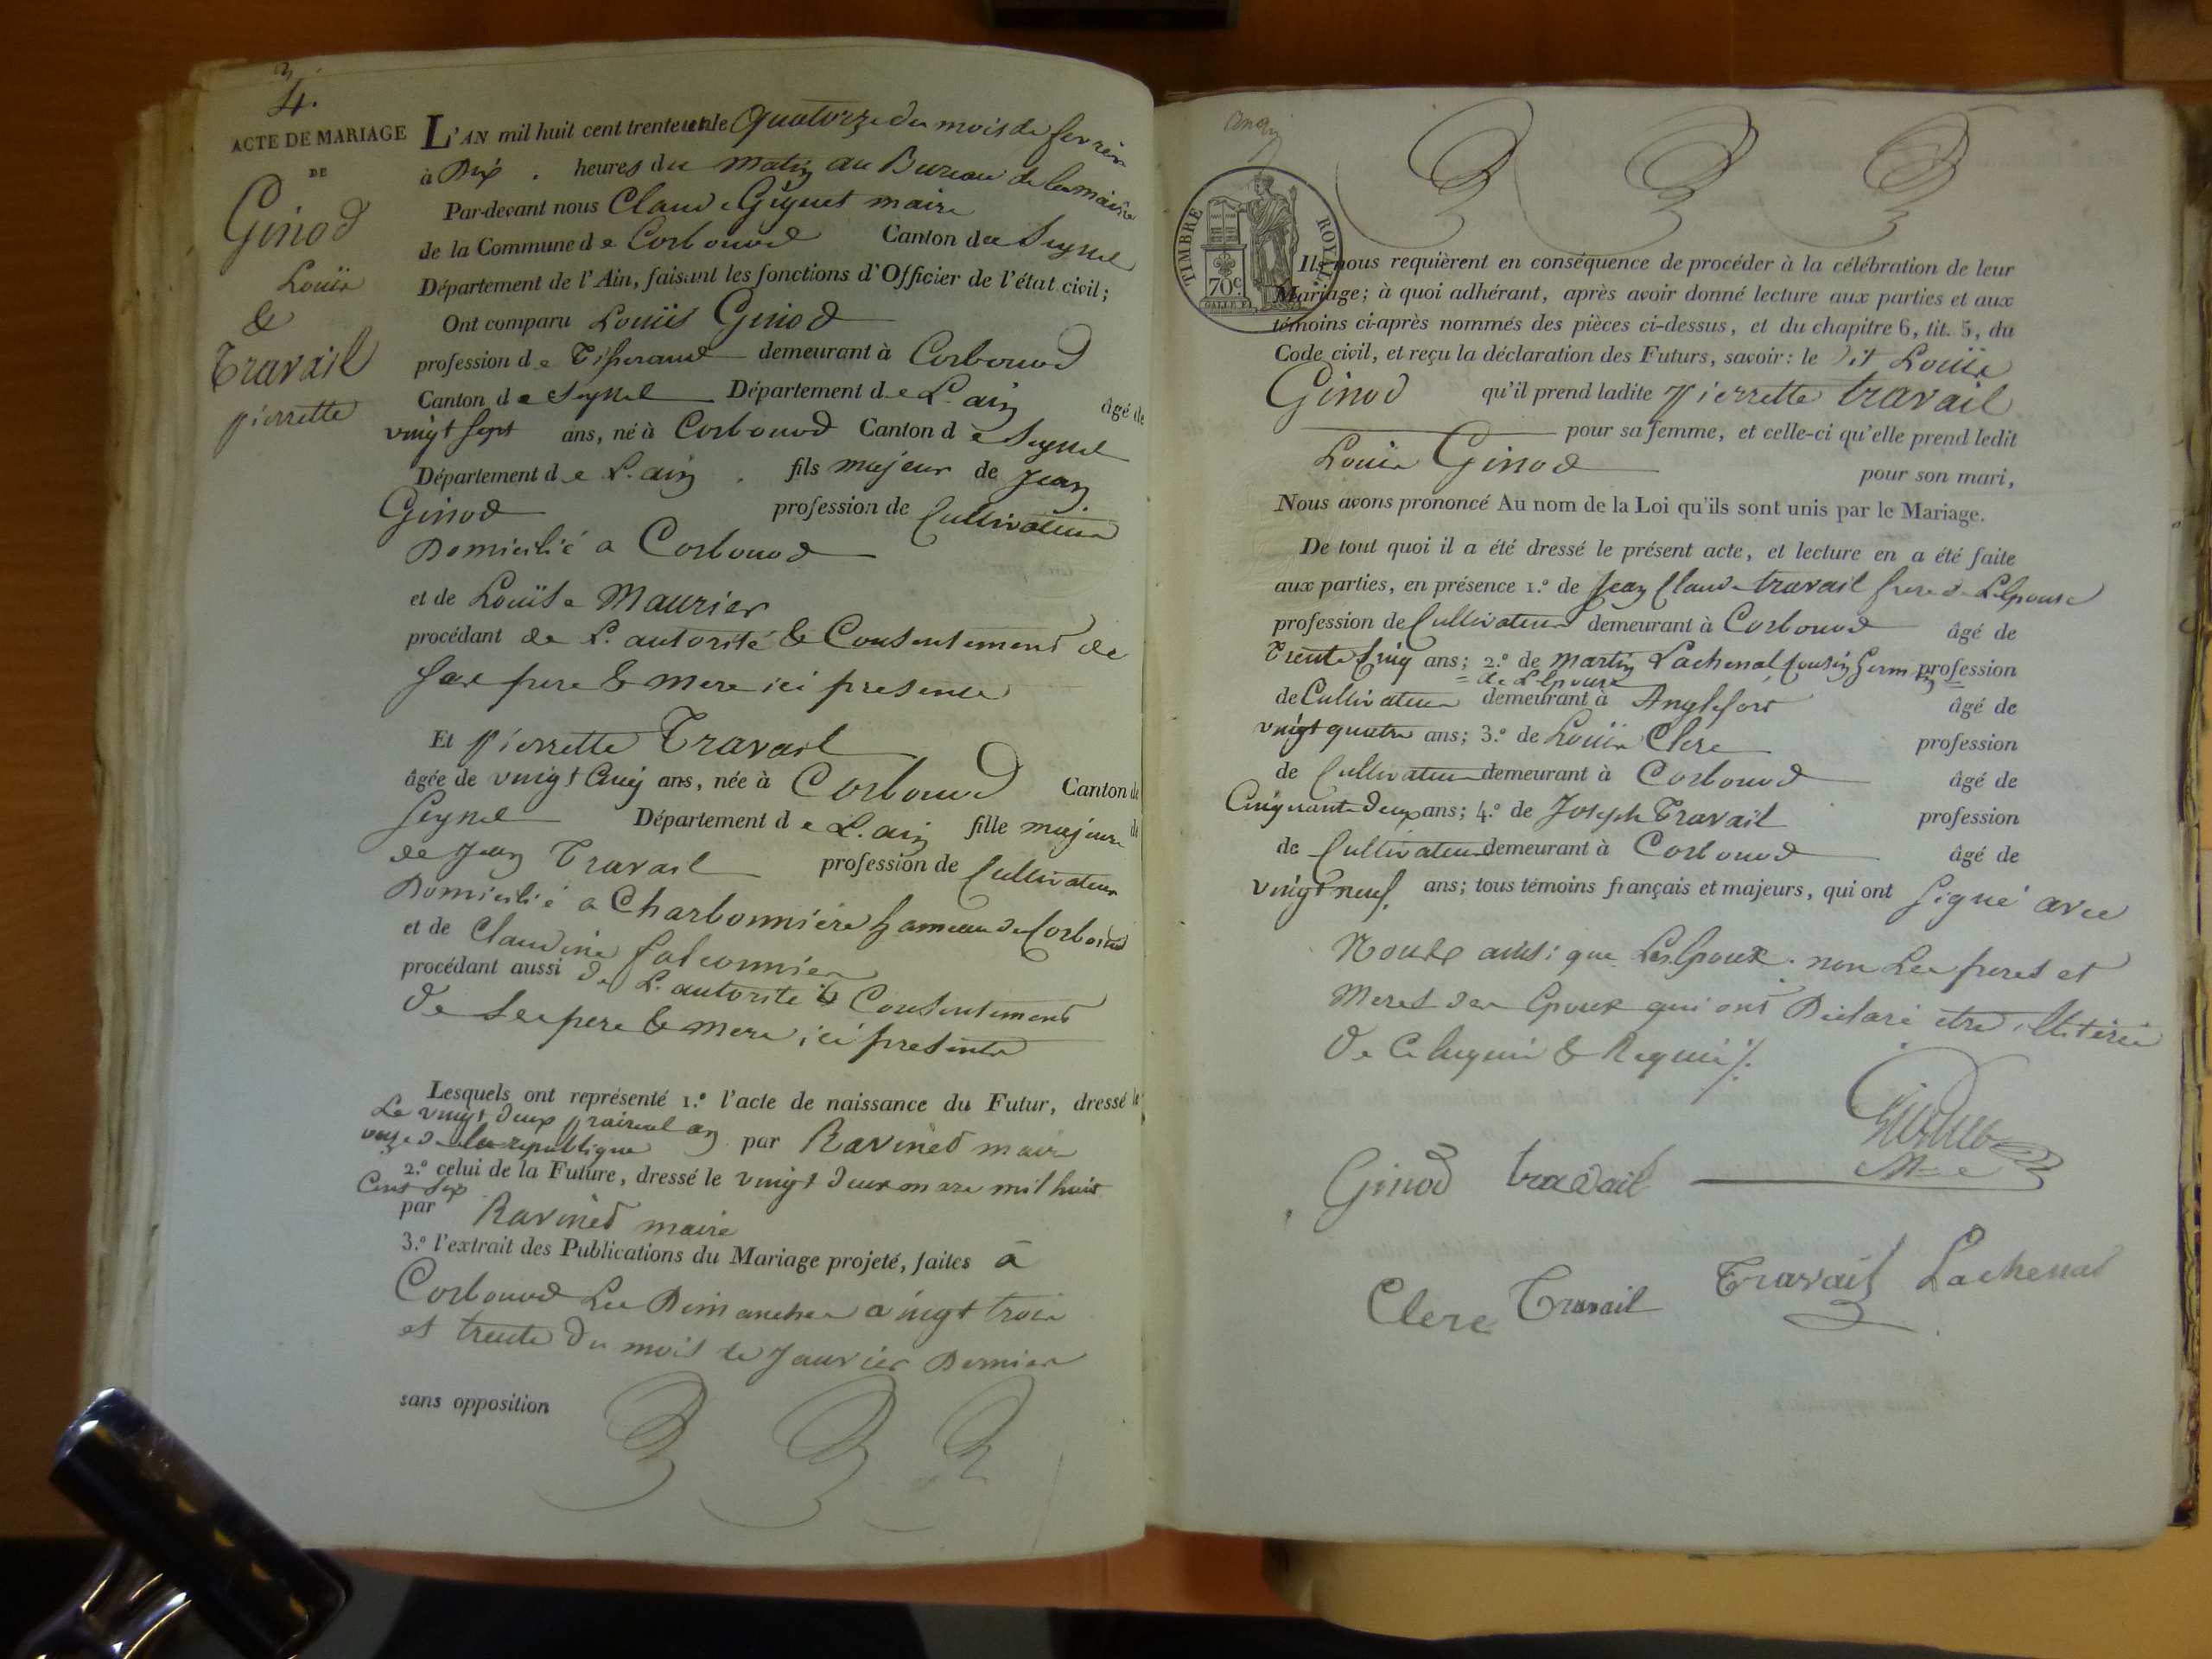 4.
ACTE DE MARIAGE
DE
Ginod
Louis
&
Travail
pierrette
L'AN mil huit cent trente le quatorze du mois de fevrier
à Dix heures du matin au Bureau de la mairie
Par-devant nous Claude Giguet maire
de la Commune de Corbonod Canton de Seyssel
Département de l'Ain, faisant les fonctions d'Officier de l'état civil;
Ont comparu Louis Ginod
profession de Tisserand demeurant à Corbonod
Canton de Seyssel Département de L'ain âgé de
vingt sept ans, né à Corbonod Canton de Seyssel
Département de L'ain fils majeur de Jean
Ginod profession de Cultivateur
Domicilié a Corbonod
et de Louise Maurier
procédant de L'autorité & Consentement de
ses pere & mere ici presents
Et pierrette Travail
âgée de vingt Cinq ans, née à Corbonod Canton de
Seyssel Département de L'ain fille majeure de
de Jean Travail profession de Cultivateur
Domicilié a Charbonniere hameau de Corbonod
et de Claudine falconnier
procédant aussi de L'autorité & Consentement
De Ses pere & mere ici presents
Lesquels ont représenté 1.º l'acte de naissance du Futur, dressé le
Le vingt deux prairial an
onze de la republique par Ravinet maire
2.º celui de la Future, dressé le vingt deux mars mil huit
Cent Six
par Ravinet maire
3.º l'extrait des Publications du Mariage projeté, faites à
Corbonod Les Dimanches vingt trois
et trente Du mois de Janvier Dernier
sans opposition
TIMBRE ROYAL
70c
Ils nous requièrent en conséquence de procéder à la célébration de leur
Mariage; à quoi adhérant, après avoir donné lecture aux parties et aux
témoins ci-après nommés des pièces ci-dessus, et du chapitre 6, tit. 5, du
Code civil, et reçu la déclaration des Futurs, savoir: le dit Louis
Ginod qu'il prend ladite pierrette travail
pour sa femme, et celle-ci qu'elle prend ledit
Louis Ginod pour son mari,
Nous avons prononcé Au nom de la Loi qu'ils sont unis par le Mariage.
De tout quoi il a été dressé le présent acte, et lecture en a été faite
aux parties, en présence 1.º de Jean Claude travail frere de L'epouse
profession de Cultivateur demeurant à Corbonod âgé de
Trente Cinq ans; 2.º de Martin Lachenal Cousin Germain profession
= de L'epouse =
de Cultivateur demeurant à Anglefort âgé de
vingt quatre ans; 3.º de Louis Clerc profession
de Cultivateur demeurant à Corbonod âgé de
Cinquante deux ans; 4.º de Joseph Travail profession
de Cultivateur demeurant à Corbonod âgé de
vingt neuf ans; tous témoins français et majeurs, qui ont Signé avec
Nous ainsi que Les Epoux. non Les peres et
Meres des Epoux qui ont Déclaré etre illiterés
De Ce Enquis & Requis ./.
Ginod travail
Clerc Travail Travail Lachenal